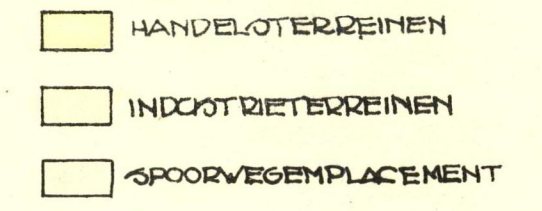 HANDELSTERREINEN
INDUSTRIETERREINEN
SPOORWEGEMPLACEMENT